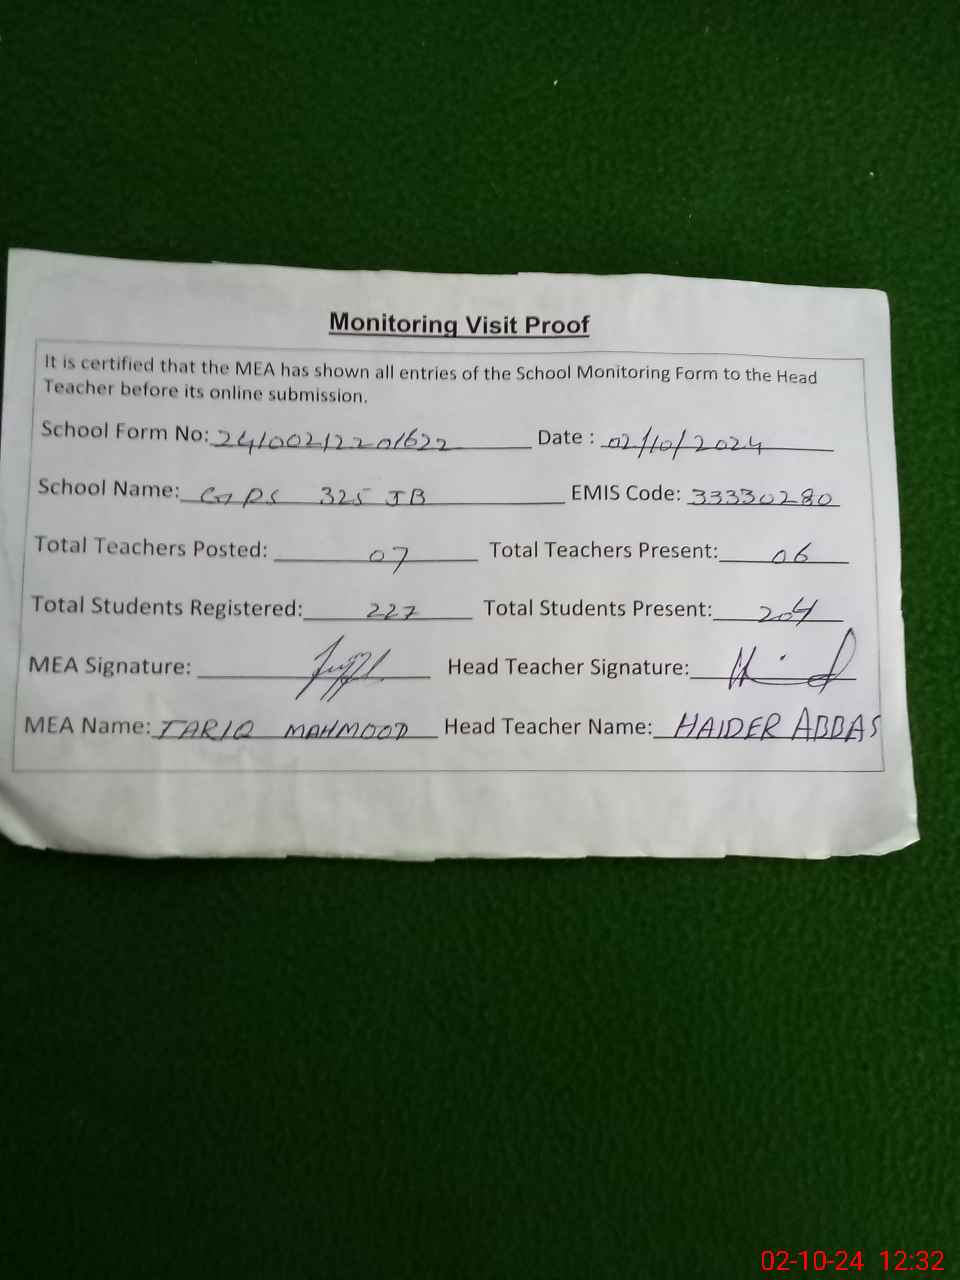 Monitoring Visit Proof
It is certified that the MEA has shown all entries of the School Monitoring Form to the Head
Teacher before its online submission.
School Form No: 24100212201622 Date : 02/10/2024
School Name: GPS 325 JB EMIS Code: 33330280
Total Teachers Posted: 07 Total Teachers Present: 06
Total Students Registered: 227 Total Students Present: 204
MEA Signature: Head Teacher Signature:
MEA Name: TARIQ MAHMOOD Head Teacher Name: HAIDER ABBAS
02-10-24 12:32